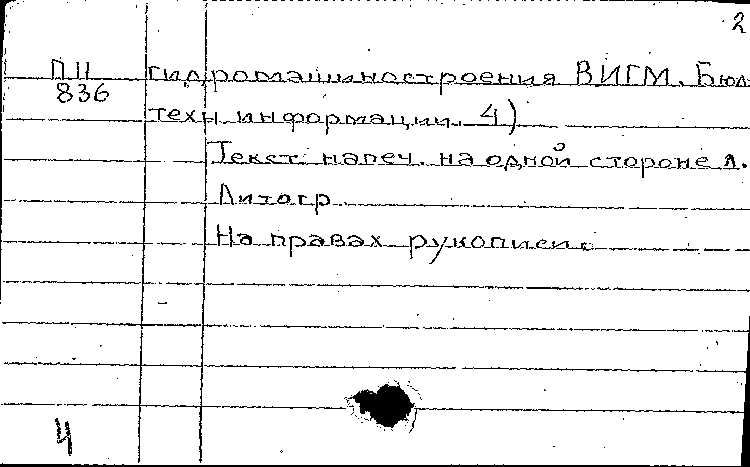 2
П 11
836
гидромашиностроения ВИГМ. Бюл.
техн. информации. 4)
Текст напеч. на одной стороне л.
Литогр.
На правах рукописи.
4